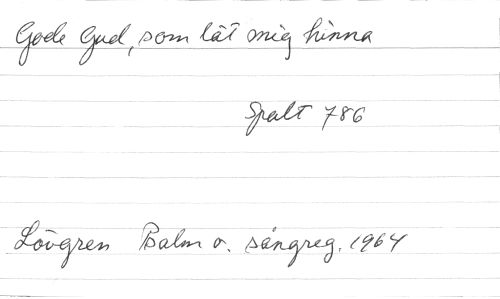 Gode Gud, som lät mig hinna
Spalt 786
Lövgren Psalm o. sångreg. 1964